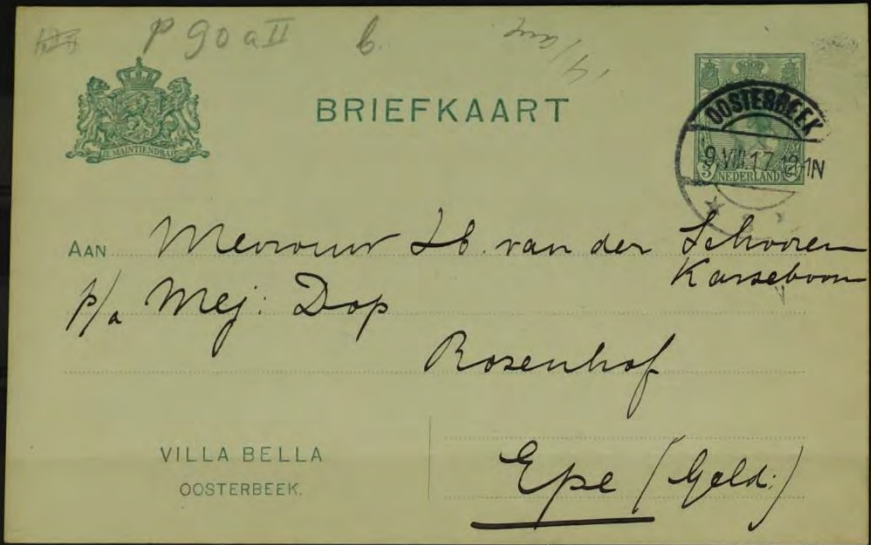 P 90 a II b.
BRIEFKAART
JE MAINTIENDRAI
OOSTERBEEK
9.VIII.17.12-1N
NEDERLAND
AAN Mevrouw H. van der Schooren
Karseboom
p/a Mej: Dop
Rosenhof
Epe (Geld:)
VILLA BELLA
OOSTERBEEK.